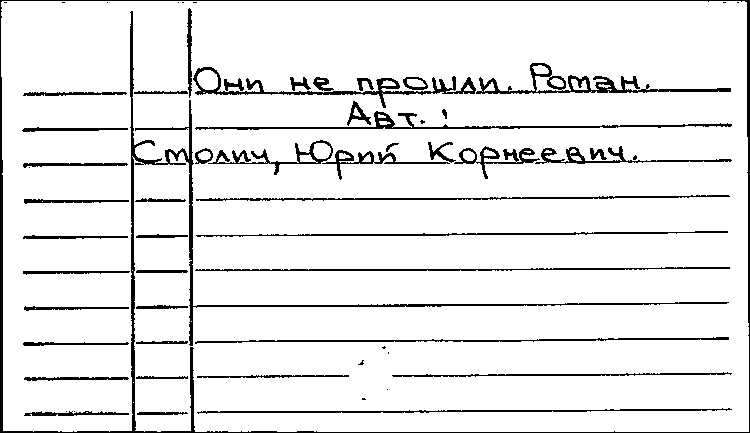 Они не прошли. Роман.
Авт.:
Столич, Юрий Корнеевич.